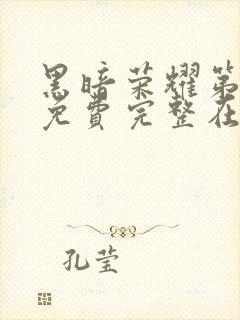 黑暗荣耀第
免费完整在
孔莹